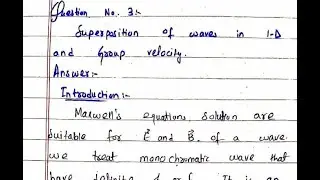 Question No. 3:-
Superposition of waves in 1-D
and Group velocity.
Answer:-
Introduction:-
Maxwell's equations solution are
suitable for E⃗ and B⃗. of a wave
we treat monochromatic wave that
have definite
It is an